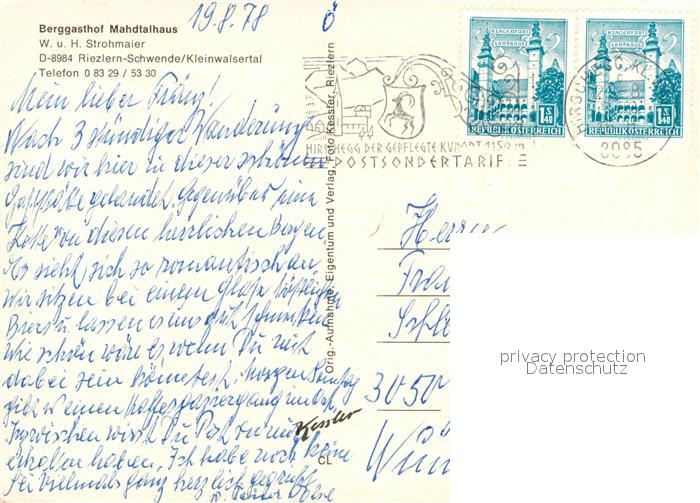 Berggasthof Mahdtalhaus
W. u. H. Strohmaier
D-8984 Riezlern-Schwende/Kleinwalsertal
Telefon 0 83 29 / 53 30
19.8.78
Ö
Mein lieber Fränz!
Nach 3 stündiger Wanderung
sind wir hier in dieser schönen
Gaststätte gelandet. Gegenüber eine
Kette von diesen herrlichen Bergen.
Es sieht sich so romantisch an.
Wir sitzen bei einem Glas köstlichen
Biers u. lassen es uns gut schmecken
Wie schön wäre es wenn Du mit
dabei sein könntest. Morgen Sonntag
gibt's einen
Inzwischen wirst Du Post von mir
erhalten haben. Ich habe noch keine
Sei vielmals ganz herzlich gegrüßt
Orig.-Aufnahme, Eigentum und Verlag, Foto Kessler, Riezlern
Kessler
CL
HIRSCHEGG DER GEPFLEGTE KURORT 1150 m
POSTSONDERTARIF
KLAGENFURT
LANDHAUS
1 S 40
REPUBLIK ÖSTERREICH
KLAGENFURT
LANDHAUS
1 S 40
REPUBLIK ÖSTERREICH
HIRSCHEGG, KL
Herrn
3050
privacy protection
Datenschutz